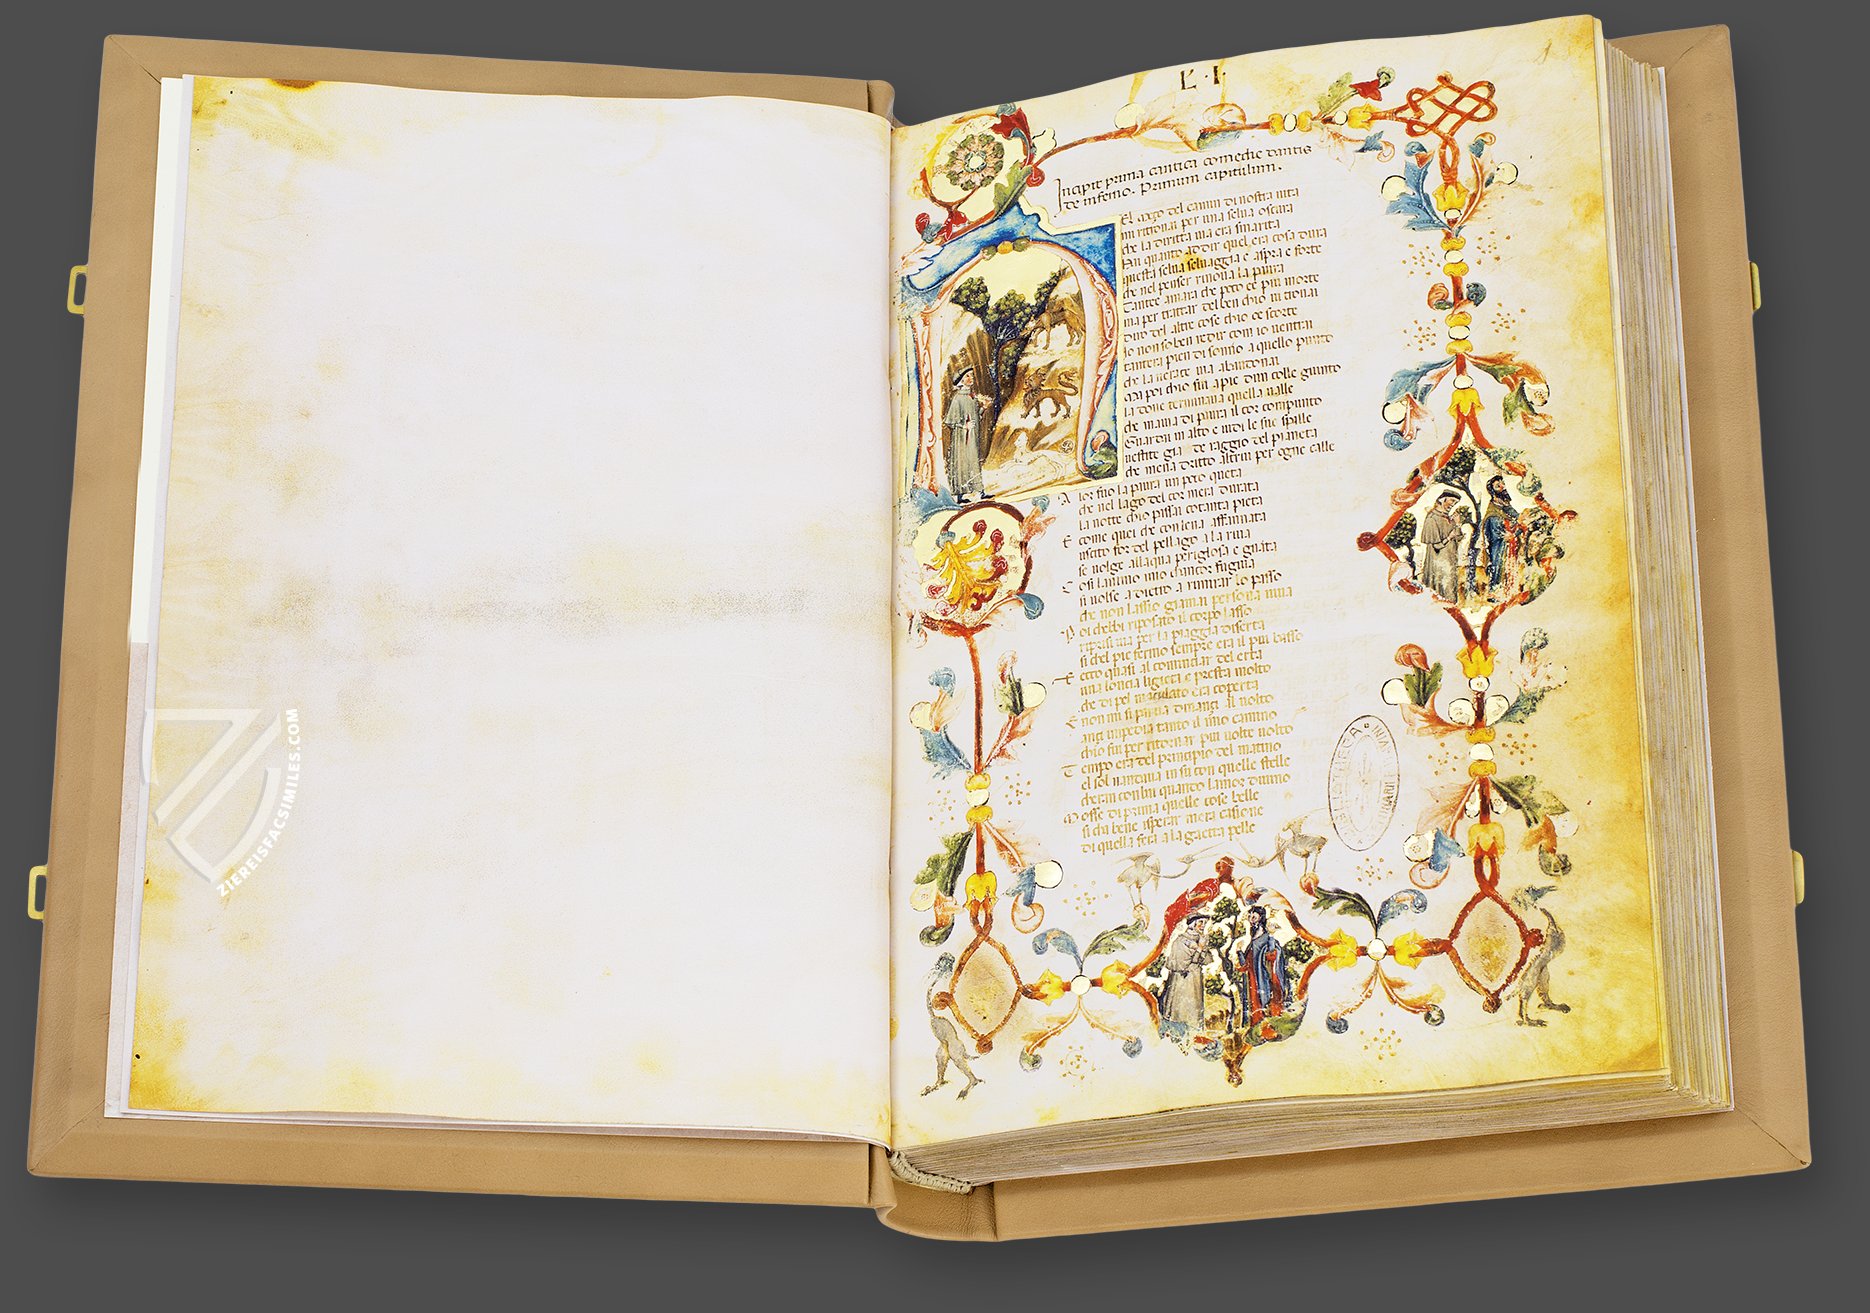 L · I ·
Incipit prima cantica comedie dantis
de inferno. Primum capitulum.
El meço del camin di nostra uita
mi ritrouai per una selua oscura
che la diritta uia era smarita
quanto addir quel era cosa dura
questa selua seluaggia e aspra e forte
che nel penser rinoua la paura
Tante amara che poco e piu morte
ma per trattar del ben chio ui trouai
diro del altre cose chio scorte
Io non so ben redir com io uentrai
tantera pien di sonno a quello punto
che la uerace uia abandonai
Ma poi chio fui a pie dun colle giunto
la doue terminaua quella ualle
che mauia di paura il cor compunto
Guardai in alto e uidi le sue spalle
uestite gia de raggio del pianeta
che mena dritto altrui per ogne calle
Alor fuo la paura un poco queta
che nel lago del cor mera durata
la notte chio passai cotanta pieta
E come quei che con lena affannata
uscito for del pellago a la riua
se uolge allaqua perigliosa e guata
Cosi lanimo mio chancor fugiua
si uolse a dietro a rimirar lo passo
che non lasso giamai persona uiua
Poi chebbi riposato il corpo lasso
ripresi uia per la piaggia diserta
si chel pie fermo sempre era il piu basso
Et ecco quasi al cominciar del erta
una lonça ligiera e presta molto
che di pel maculato era coperta
E non mi si partia dinançi al uolto
ançi impedia tanto il mio camino
chio fui per ritornar piu uolte uolto
Tempo era del principio del matino
el sol montaua in su con quelle stelle
cheran con lui quando lamor diuino
Mosse di prima quelle cose belle
si cha bene sperar mera casione
di quella fera a la gaetta pelle
ZIEREISFACSIMILES.COM